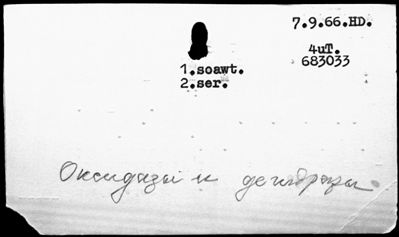 7.9.66.HD.
4uT.
683033
1.soawt.
2.ser.
Оксидазы и дегидразы